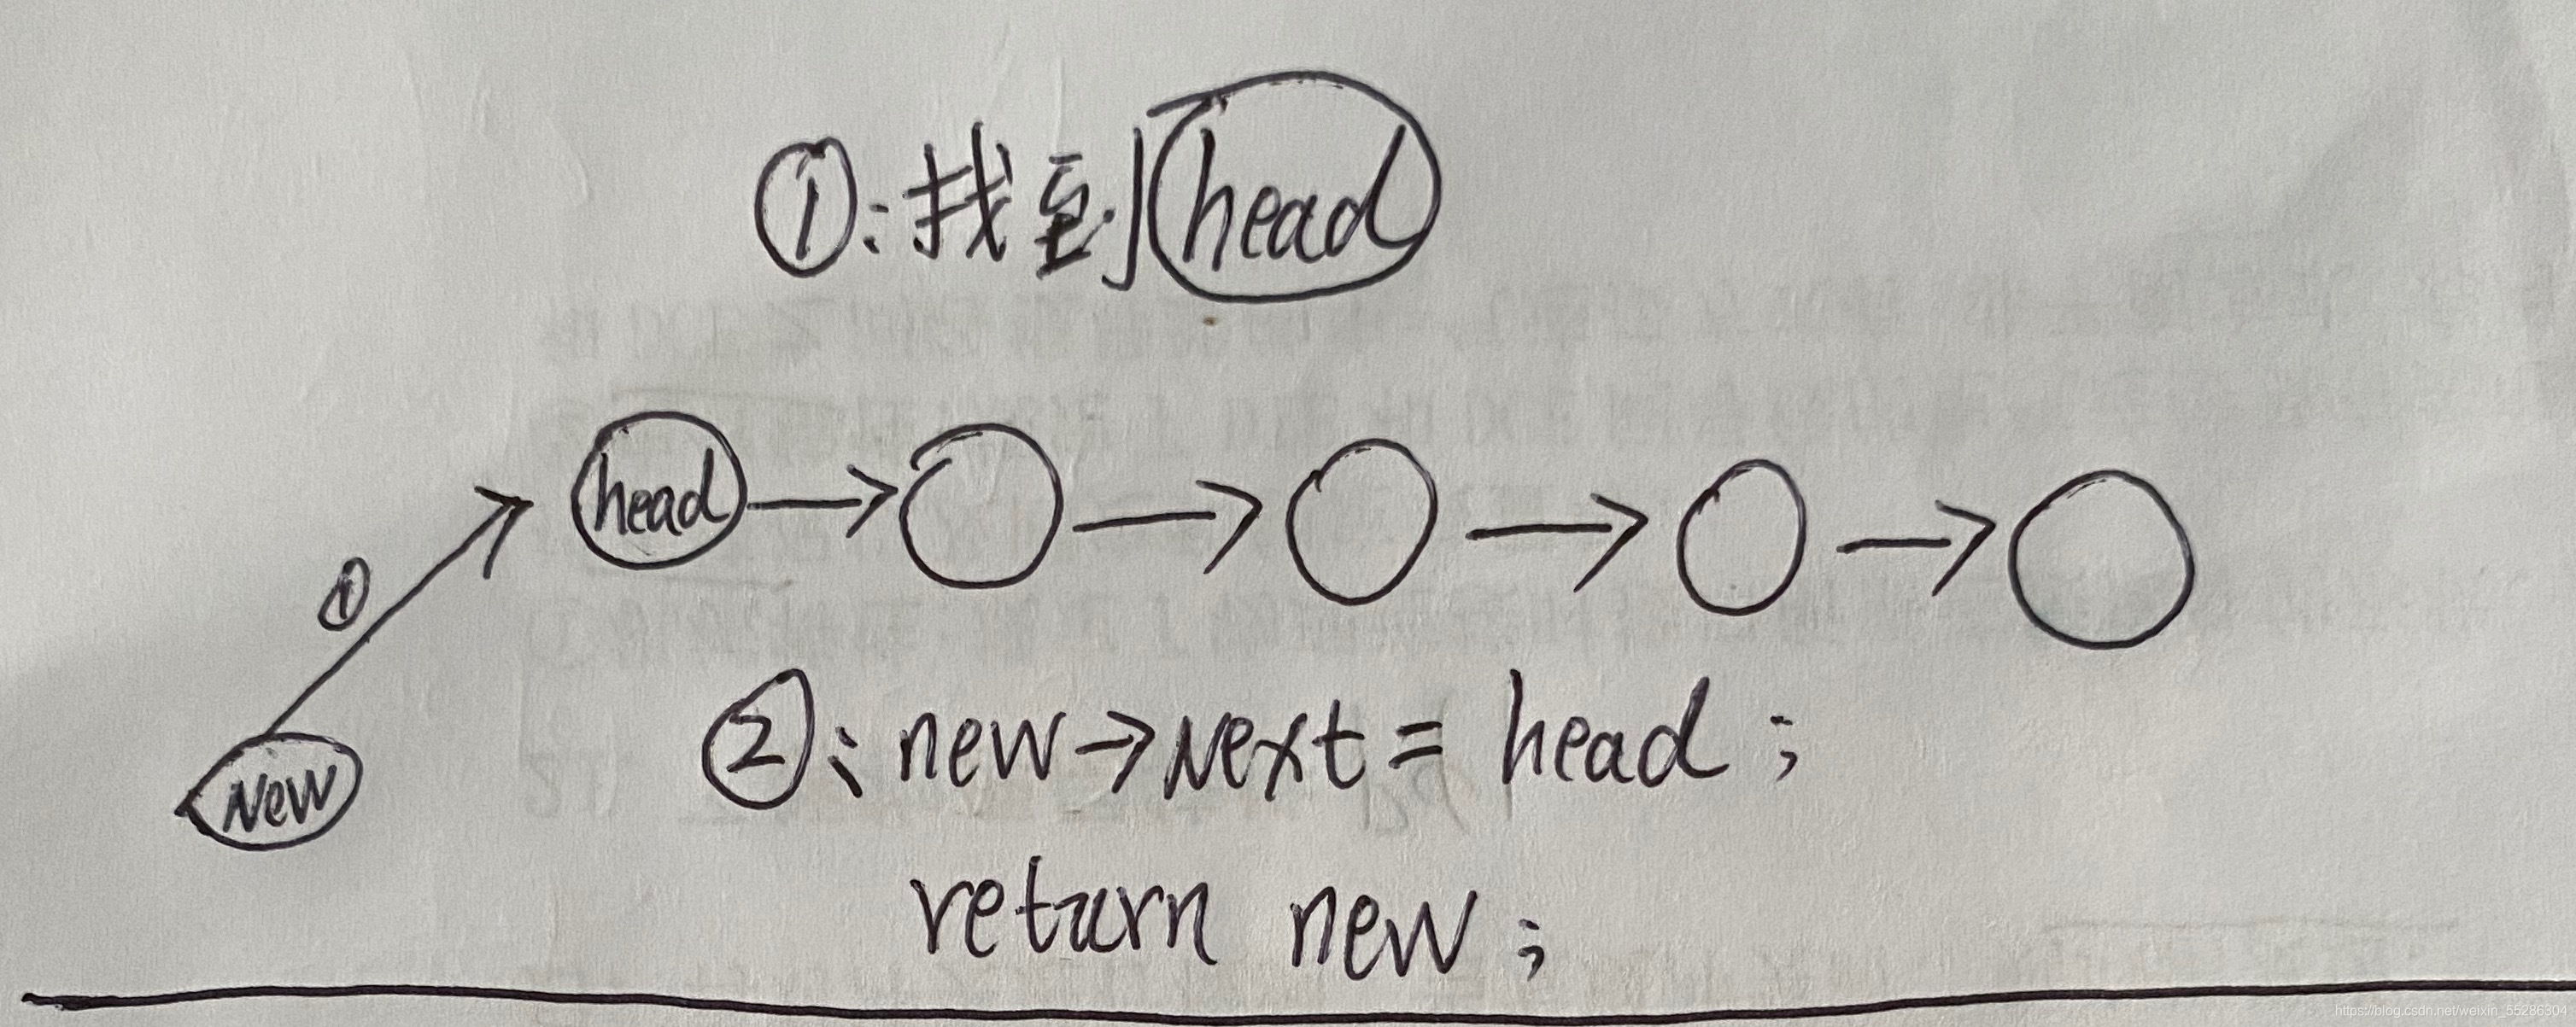 ①:找到head
head
①
New
②: new→Next = head;
return new;
https://blog.csdn.net/weixin_55286304